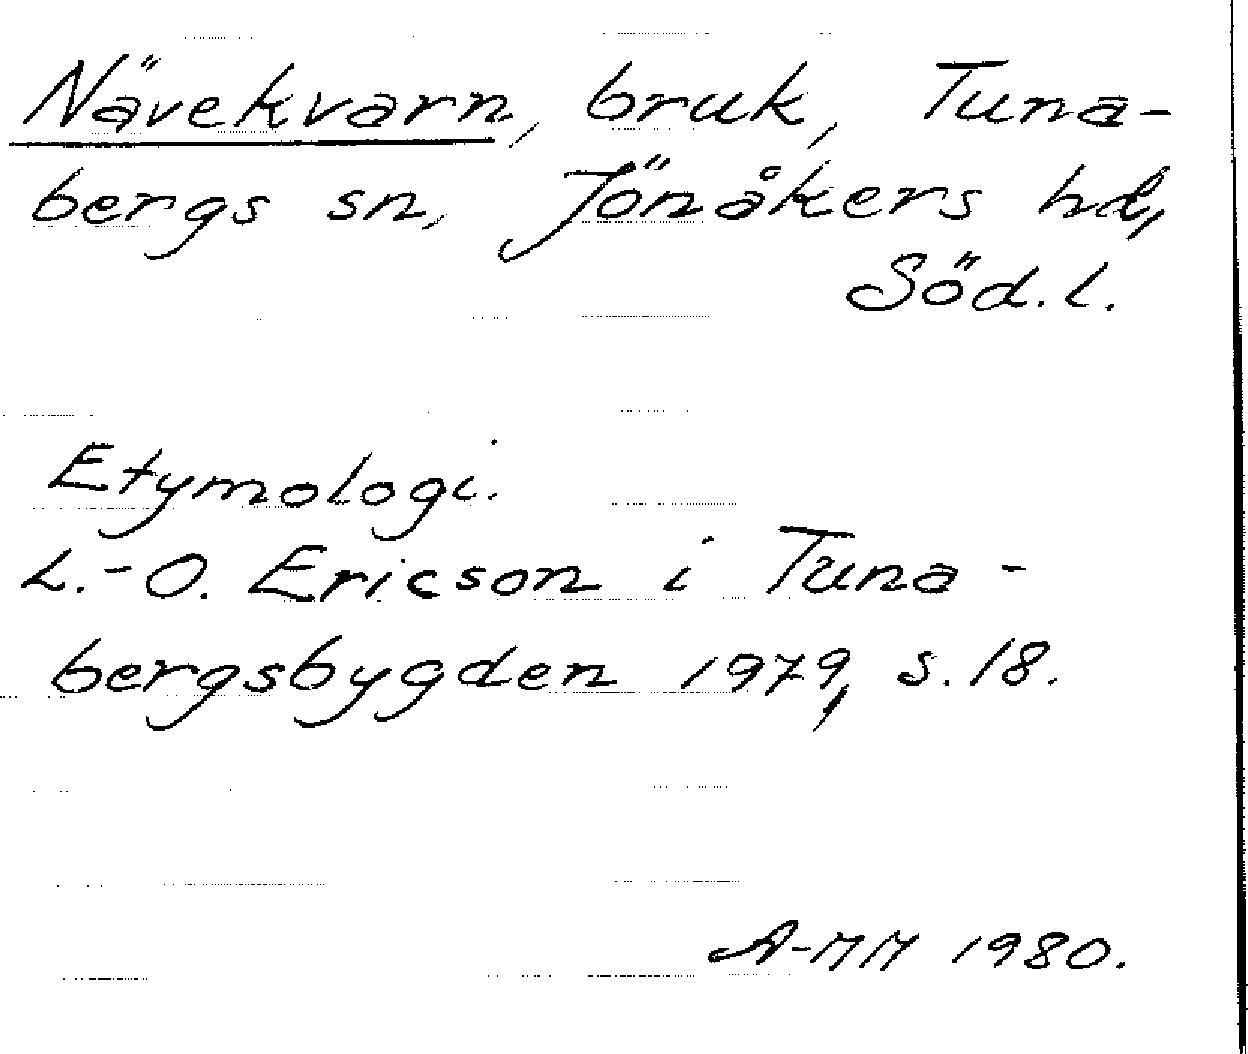 Nävekvarn, bruk, Tuna-
bergs sn, Jönåkers hd,
Söd.l.
Etymologi.
L.-O. Ericson i Tuna-
bergsbygden 1979, s. 18.
A-MM 1980.